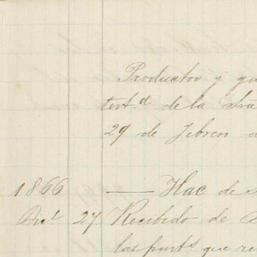 Productos y
tert.ª de la
29 de Febrero
1866 — Hac de
27 Recibido de
las part.s que